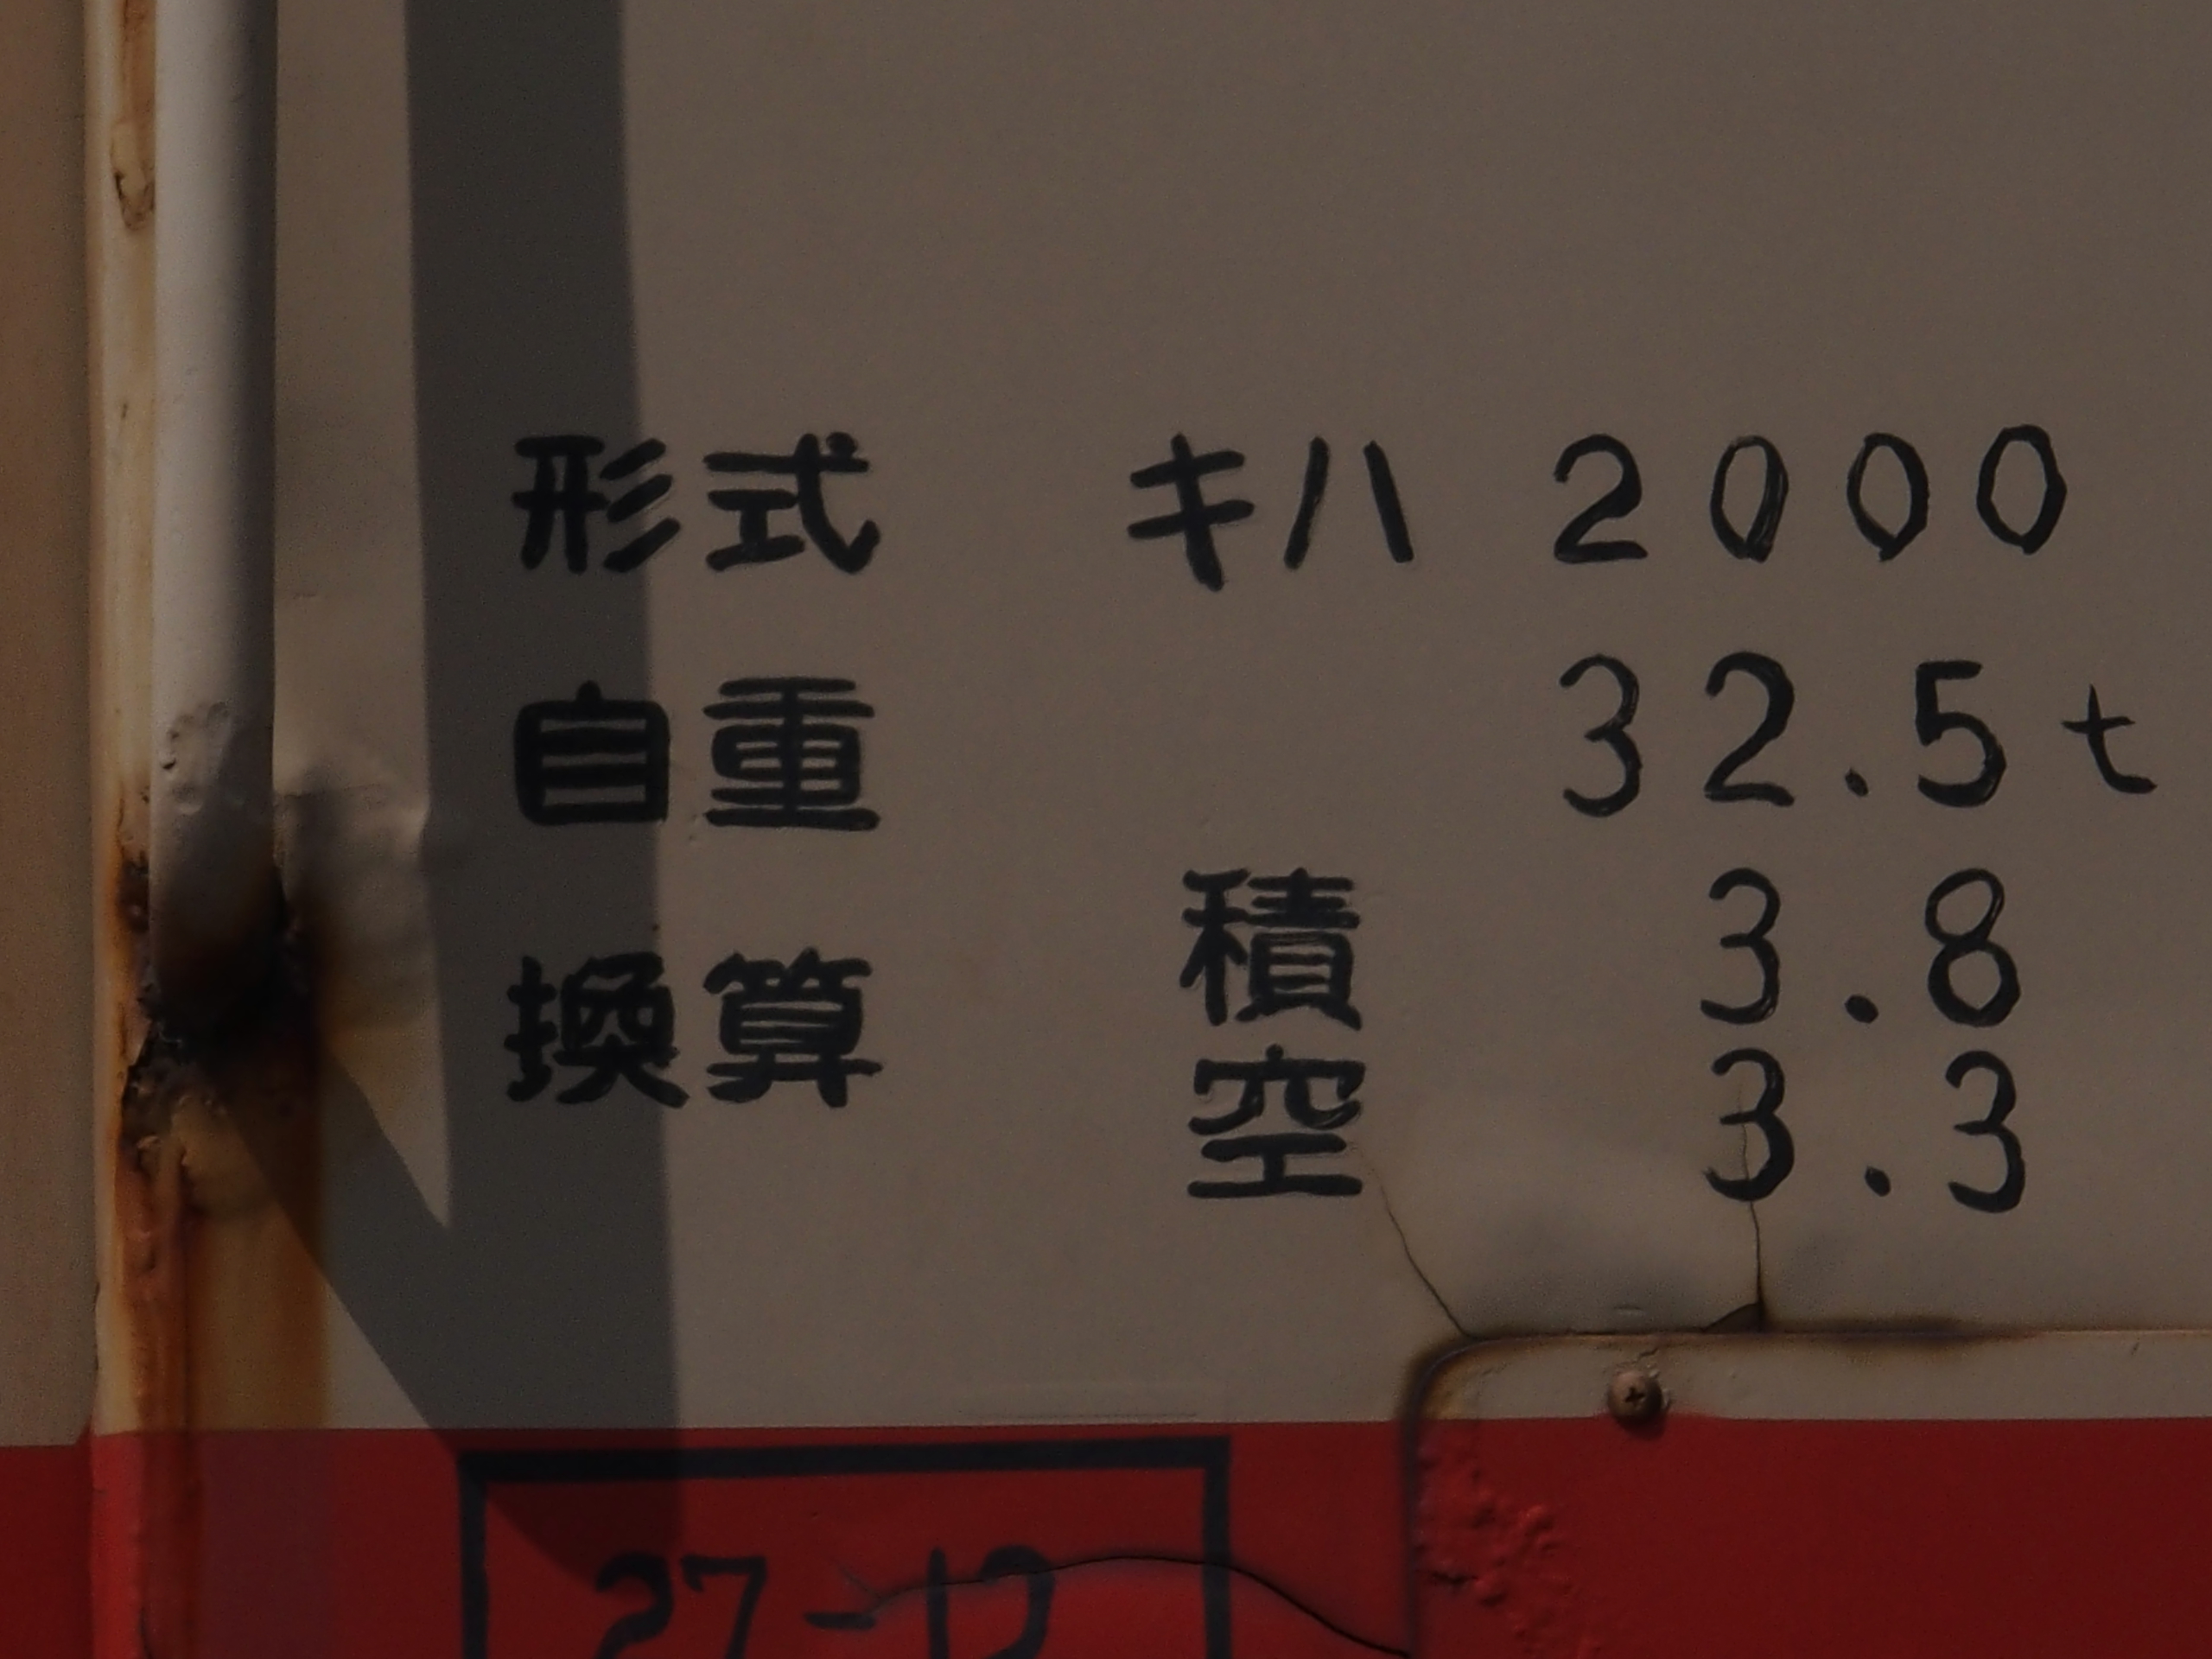 形式 キハ 2000
自重 32.5t
換算 積 3.8
空 3.3
27-12